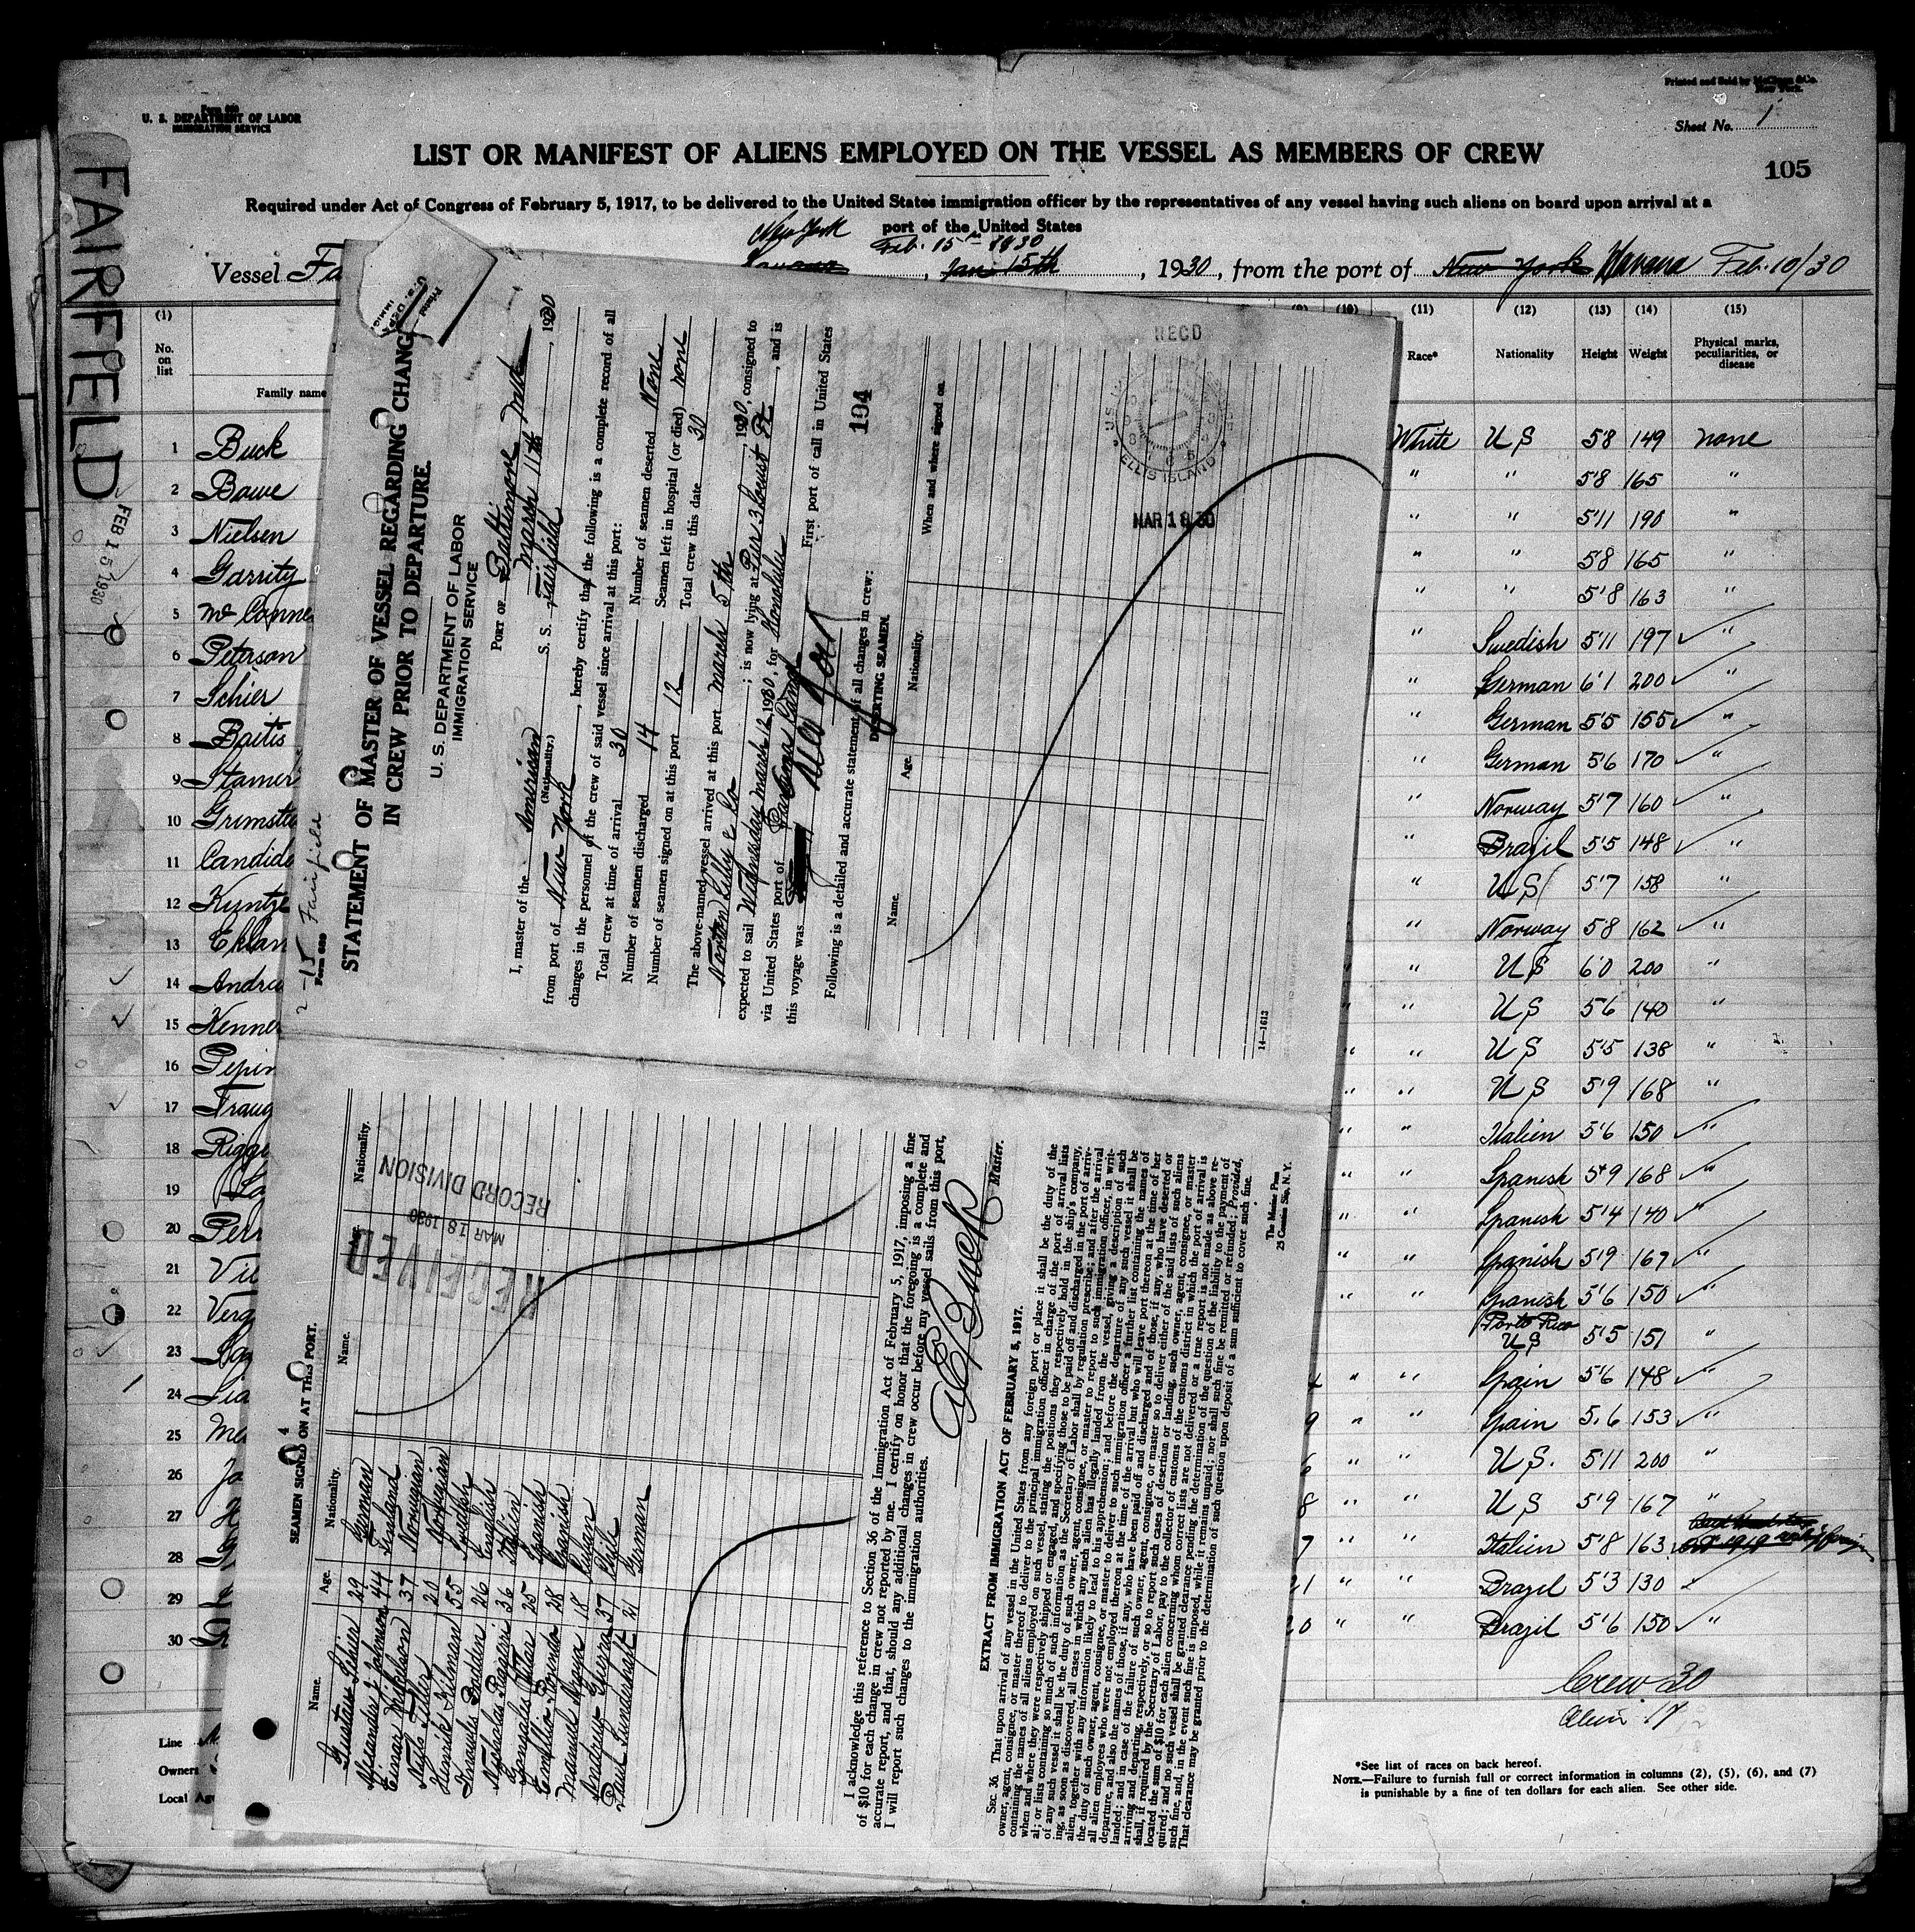 Form 689
U. S. DEPARTMENT OF LABOR
IMMIGRATION SERVICE
Printed and Sold by
New York.
Sheet No. 1
LIST OR MANIFEST OF ALIENS EMPLOYED ON THE VESSEL AS MEMBERS OF CREW
105
Required under Act of Congress of February 5, 1917, to be delivered to the United States immigration officer by the representatives of any vessel having such aliens on board upon arrival at a
port of the United States
New York
Feb. 15th 1930
Vessel Fa
Jan 15th, 1930, from the port of New York Havana Feb. 10/30
FAIRFIELD
FEB 15 1930
(1) (10) (11) (12) (13) (14) (15)
No. on list
Family name
Race*
Nationality
Height
Weight
Physical marks, peculiarities, or disease
1 Buck White U S 5'8 149 none
2 Bawe " " 5'8 165 "
3 Nielsen " " 5'11 190 "
4 Garrity " 5'8 165 "
5 McConne " " 5'8 163 "
6 Peterson " Swedish 5'11 197 "
7 Schier " German 6'1 200 "
8 Baitis " German 5'5 155 "
9 Stamer " German 5'6 170 "
10 Grimst " Norway 5'7 160 "
11 Candid " Brazil 5'5 148 "
12 Kuntze " U S 5'7 158 "
13 Eklan " Norway 5'8 162 "
14 Andre " U S 6'0 200 "
15 Kenne " U S 5'6 140 "
16 Pepin " " U S 5'5 138 "
17 Traug " " U S 5'9 168 "
18 Rigg " " Italien 5'6 150 "
19 " " Spanish 5'9 168 "
20 Per " " Spanish 5'4 140 "
21 Vil " " Spanish 5'9 167 "
22 Verg " " Spanish 5'6 150 "
23 Porto Rico U S 5'5 151 "
24 " " Spain 5'6 148 "
25 Me 9 " " Spain 5.6 153 "
26 Ja 6 " " U.S. 5'11 200 "
27 8 " " U S 5'9 167 "
28 7 " " Italien 5'8 163
29 21 " " Brazil 5'3 130
30 20 " " Brazil 5'6 150 "
Crew 30
Alien 17
Line
Owners
Local Age
*See list of races on back hereof.
NOTE.—Failure to furnish full or correct information in columns (2), (5), (6), and (7)
is punishable by a fine of ten dollars for each alien. See other side.
2-15 Fairfield
Form 689
STATEMENT OF MASTER OF VESSEL REGARDING CHANG
IN CREW PRIOR TO DEPARTURE.
U. S. DEPARTMENT OF LABOR
IMMIGRATION SERVICE
PORT OF Baltimore
March 11th, 1930
I, master of the American S. S. Fairfield
(Nationality.)
from port of New York, hereby certify that the following is a complete record of all
changes in the personnel of the crew of said vessel since arrival at this port:
Total crew at time of arrival 30
Number of seamen deserted None
Number of seamen discharged 14
Seamen left in hospital (or died) none
Number of seamen signed on at this port 12
Total crew this date 30
The above-named vessel arrived at this port March 5th, 1930, consigned to
Norton Lilly & Co; is now lying at Pier 3 Locust Pt, and is
expected to sail Wednesday March 12 1930, for Honolulu
via United States port of
First port of call in United States
this voyage was New York
194
Following is a detailed and accurate statement of all changes in crew:
DESERTING SEAMEN.
Name. Age. Nationality. When and where signed on.
RECD
ELLIS ISLAND
MAR 18 30
14—1613
4
SEAMEN SIGNED ON AT THIS PORT.
Name. Age. Nationality. Name. Age. Nationality.
Gustav Schier 29 German
Alexander J Johnson 44 Finland
Einar Mickelson 37 Norwegian
Neils Teller 20 Norwegian
Henrik Hilman 55 Swedish
Knowles Budden 26 English
Nicholas Ruggeri 36 Italien
Gonzales Pilar 25 Spanish
Emillio Pomdo 28 Spanish
Manuel Moya 18 Cuban
Andrew Guerra 37 Chile
Paul Sundershaft 21 German
RECEIVED
MAR 18 1930
RECORD DIVISION
I acknowledge this reference to Section 36 of the Immigration Act of February 5, 1917, imposing a fine
of $10 for each change in crew not reported by me. I certify on honor that the foregoing is a complete and
accurate report, and that, should any additional changes in crew occur before my vessel sails from this port,
I will report such changes to the immigration authorities.
Buck
Master.
EXTRACT FROM IMMIGRATION ACT OF FEBRUARY 5, 1917.
SEC. 36. That upon arrival of any vessel in the United States from any foreign port or place it shall be the duty of the
owner, agent, consignee, or master thereof to deliver to the principal immigration officer in charge of the port of arrival lists
containing the names of all aliens employed on such vessel, stating the positions they respectively hold in the ship's company,
when and where they were respectively shipped or engaged, and specifying those to be paid off and discharged in the port of arriv-
al; or lists containing so much of such information as the Secretary of Labor shall by regulation prescribe; and after the arrival
of any such vessel it shall be the duty of such owner, agent, consignee, or master to report to such immigration officer, in writ-
ing, as soon as discovered, all cases in which any such alien has illegally landed from the vessel, giving a description of such
alien, together with any information likely to lead to his apprehension; and before the departure of any such vessel it shall be
the duty of such owner, agent, consignee, or master to deliver to such immigration officer a further list containing the names of
all alien employees who were not employed thereon at the time of the arrival but who will leave port thereon at the time of her
departure, and also the names of those, if any, who have been paid off and discharged and of those, if any, who have deserted or
landed; and in case of the failure of such owner, agent, consignee, or master so to deliver either of the said lists of such aliens
arriving and departing, respectively, or so to report such cases of desertion or landing, such owner, agent, consignee, or master
shall, if required by the Secretary of Labor, pay to the collector of customs of the customs district in which the port of arrival is
located the sum of $10 for each alien concerning whom correct lists are not delivered or a true report is not made as above re-
quired; and no such vessel shall be granted clearance pending the determination of the question of the liability to the payment of
such fine, and, in the event such fine is imposed, while it remains unpaid; nor shall such fine be remitted or refunded: Provided,
That clearance may be granted prior to the determination of such question upon deposit of a sum sufficient to cover such fine.
25 N. Y.